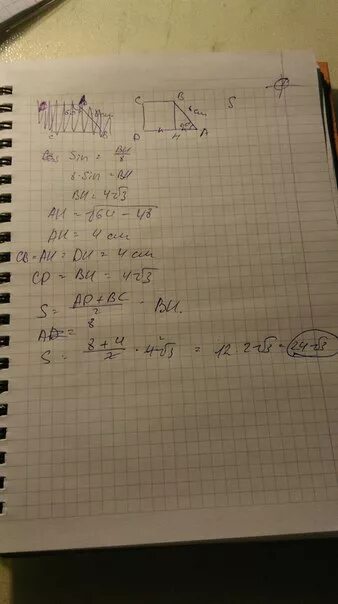 C B 8 см S
D H A
Sin = BH/8
8 · Sin = BH
BH = 4√3
AH = √64 - 48
AH = 4 см
CB = AH = DH = 4 см
CD = BH = 4√3
S = AD + BC / 2 · BH.
AD = 8
S = 8 + 4 / 2 · 4√3 = 12 · 2√3 = 24√3